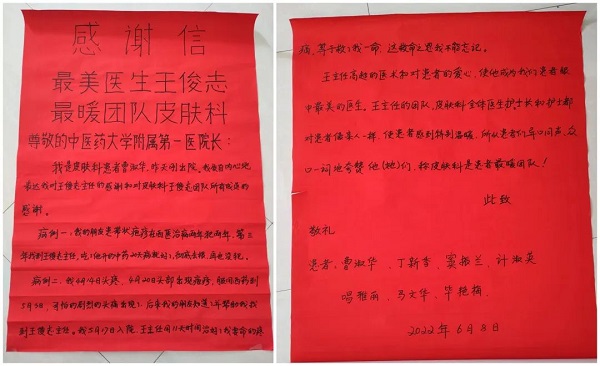 感谢信
最美医生王俊志
最暖团队皮肤科
尊敬的中医药大学附属第一医院长：
我是皮肤科患者曹淑华，昨天刚出院，我发自内心地
表达我对王俊志主任的感谢和对皮肤科王俊志团队所有成员的
感谢。
病例一：我的朋友患带状疱疹在西医治病两年犯两年，第三
年找到王俊志主任，吃了他开的中药20天病就好了，彻底去根，再也没犯。
病例二：我4月14日头疼，4月20日头部出现疱疹，服用西药到
5月3号，可怕的剧烈的头痛出现了，后来我的朋友知道了年帮助我找
到王俊志主任。我5月17日入院，王主任用11天时间治好了我要命的疼
病，等于救了我一命，这救命之恩我不能忘记。
王主任高超的医术和对患者的爱心，使他成为我们患者眼
中最美的医生。王主任的团队，皮肤科全体医生护士长和护士都
对患者像亲人一样，使患者感到特别温暖，所以患者们异口同声，众
口一词地夸赞他(她)们，称皮肤科是患者最暖团队！
此致
敬礼
患者：曹淑华、丁新香、窦振兰、许淑英
冯雅丽、弓文华、毕艳梅
2022年6月8日